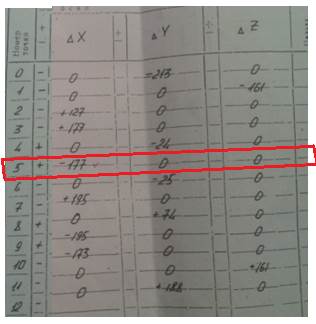 Номер точки + - Δ X ± Δ Y ± Δ Z
0 - 0 -213 0
1 - 0 0 -161
2 - +127 0 0
3 - +177 0 0
4 + 0 -24 0
5 + -177 0 0
6 - 0 -25 0
7 - +195 0 0
8 + 0 +74 0
9 + -195 0 0
10 -173 0 0
11 - 0 0 +161
12 - 0 +188 0